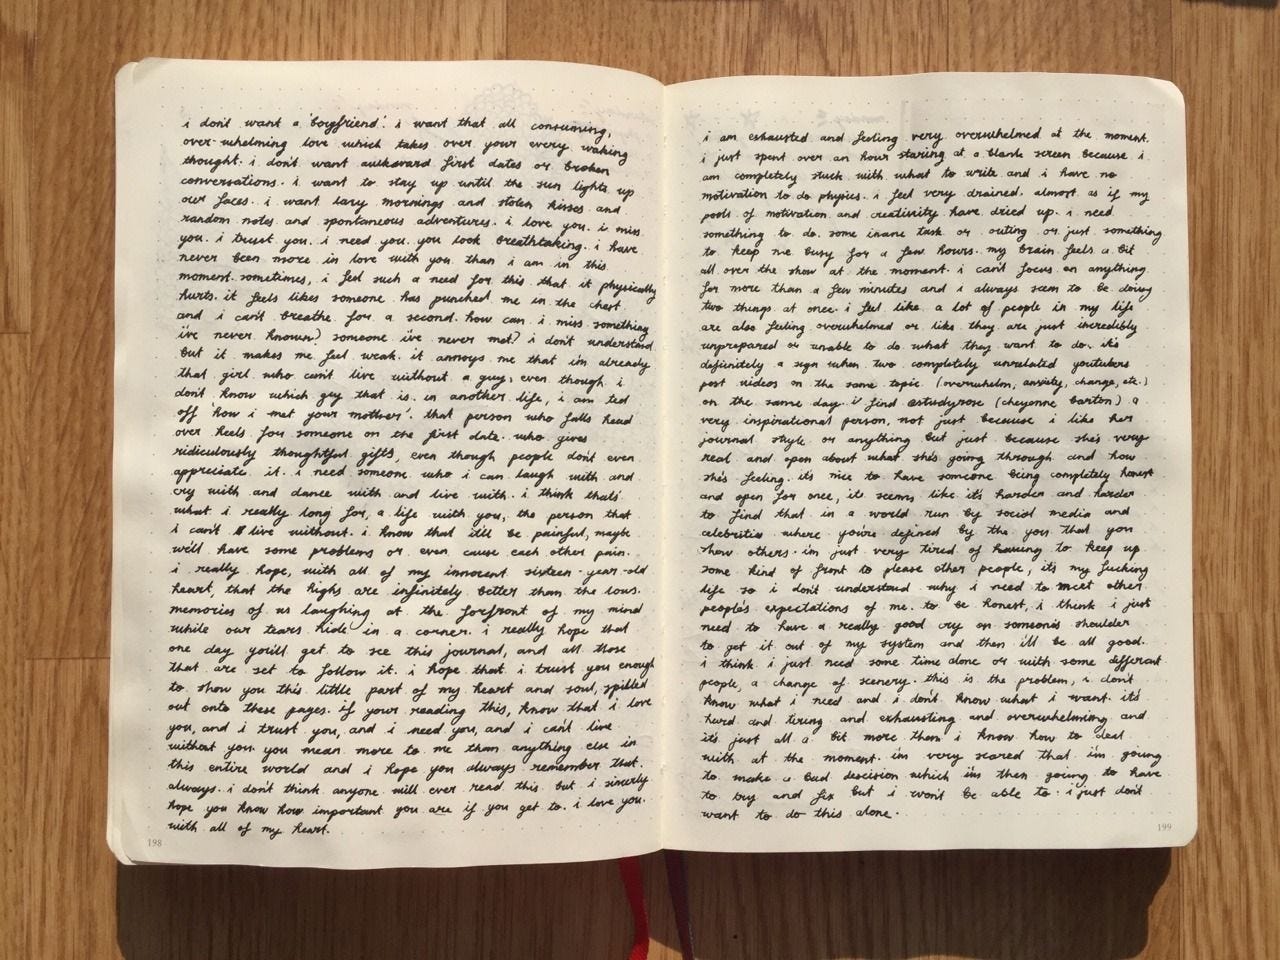 i don't want a 'boyfriend'. i want that all consuming,
over-whelming love which takes over your every waking
thought. i don't want awkward first dates or broken
conversations. i want to stay up until the sun lights up
our faces. i want lazy mornings and stolen kisses and
random notes and spontaneous adventures. i love you. i miss
you. i trust you. i need you. you look breathtaking. i have
never been more in love with you than i am in this
moment. sometimes, i feel such a need for this that it physically
hurts. it feels likes someone has punched me in the chest
and i can't breathe for a second. how can i miss something
i've never known? someone i've never met? i don't understand
but it makes me feel weak. it annoys me that i'm already
that girl who can't live without a guy, even though i
don't know which guy that is. in another life, i am ted
off 'how i met your mother'. that person who falls head
over heels for someone on the first date. who gives
ridiculously thoughtful gifts, even though people don't even
appreciate it. i need someone who i can laugh with and
cry with and dance with and live with. i think that's
what i really long for, a life with you, the person that
i can't live without. i know that it'll be painful, maybe
we'll have some problems or even cause each other pain.
i really hope, with all of my innocent sixteen-year-old
heart, that the highs are infinitely better than the lows.
memories of us laughing at the forfront of my mind
while our tears hide in a corner. i really hope that
one day you'll get to see this journal, and all those
that are set to follow it. i hope that i trust you enough
to show you this little part of my heart and soul, spilled
out onto these pages. if your reading this, know that i love
you, and i trust you, and i need you, and i can't live
without you. you mean more to me than anything else in
this entire world and i hope you always remember that.
always. i don't think anyone will ever read this. but i sincerly
hope you know how important you are if you get to. i love you.
with all of my heart.
198
i am exhausted and feeling very overwhelmed at the moment.
i just spent over an hour staring at a blank screen because i
am completely stuck with what to write and i have no
motivation to do physics. i feel very drained. almost as if my
pools of motivation and creativity have dried up. i need
something to do. some inane task or outing or just something
to keep me busy for a few hours. my brain feels a bit
all over the show at the moment. i can't focus on anything
for more than a few minutes and i always seem to be doing
two things at once. i feel like a lot of people in my life
are also feeling overwhelmed or like they are just incredibly
unprepared or unable to do what they want to do. it's
definitely a sign when two completely unrelated youtubers
post videos on the same topic (overwhelm, anxiety, change, etc.)
on the same day. i find astudyrose (cheyenne barton) a
very inspirational person, not just because i like her
journal style or anything but just because she's very
real and open about what she's going through and how
she's feeling. it's nice to have someone being completely honest
and open for once, it seems like it's harder and harder
to find that in a world run by social media and
celebrities where you're defined by the you that you
show others. i'm just very tired of having to keep up
some kind of front to please other people, it's my fucking
life so i don't understand why i need to meet other
people's expectations of me. to be honest, i think i just
need to have a really good cry on someone's shoulder
to get it out of my system and then i'll be all good.
i think i just need some time alone or with some different
people, a change of scenery. this is the problem, i don't
know what i need and i don't know what i want. it's
hard and tiring and exhausting and overwhelming and
it's just all a bit more than i know how to deal
with at the moment. i'm very scared that i'm going
to make a bad decision which i'm then going to have
to try and fix but i won't be able to. i just don't
want to do this alone.
199